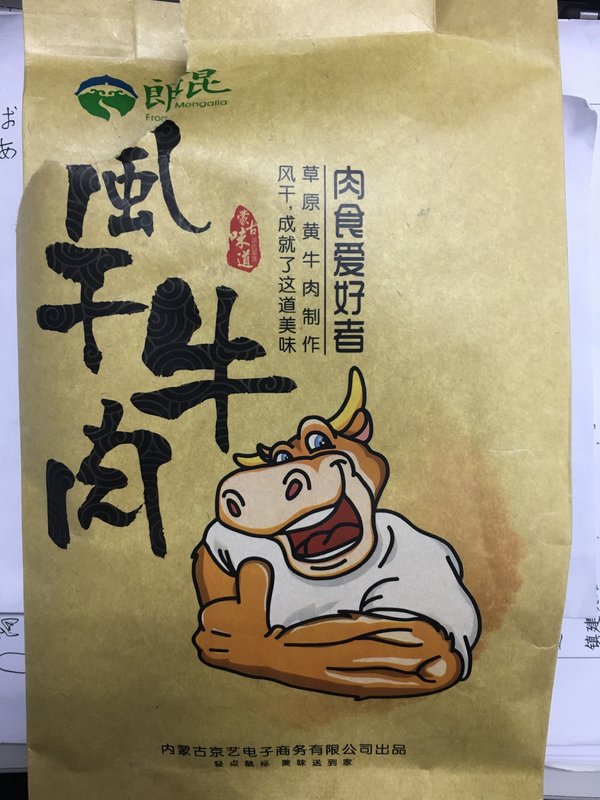 郎琨
From Mongolia
風干牛肉
蒙古
味道
肉食爱好者
草原黄牛肉制作
风干,成就了这道美味
内蒙古京艺电子商务有限公司出品
轻点鼠标 美味送到家
おあ
镇建